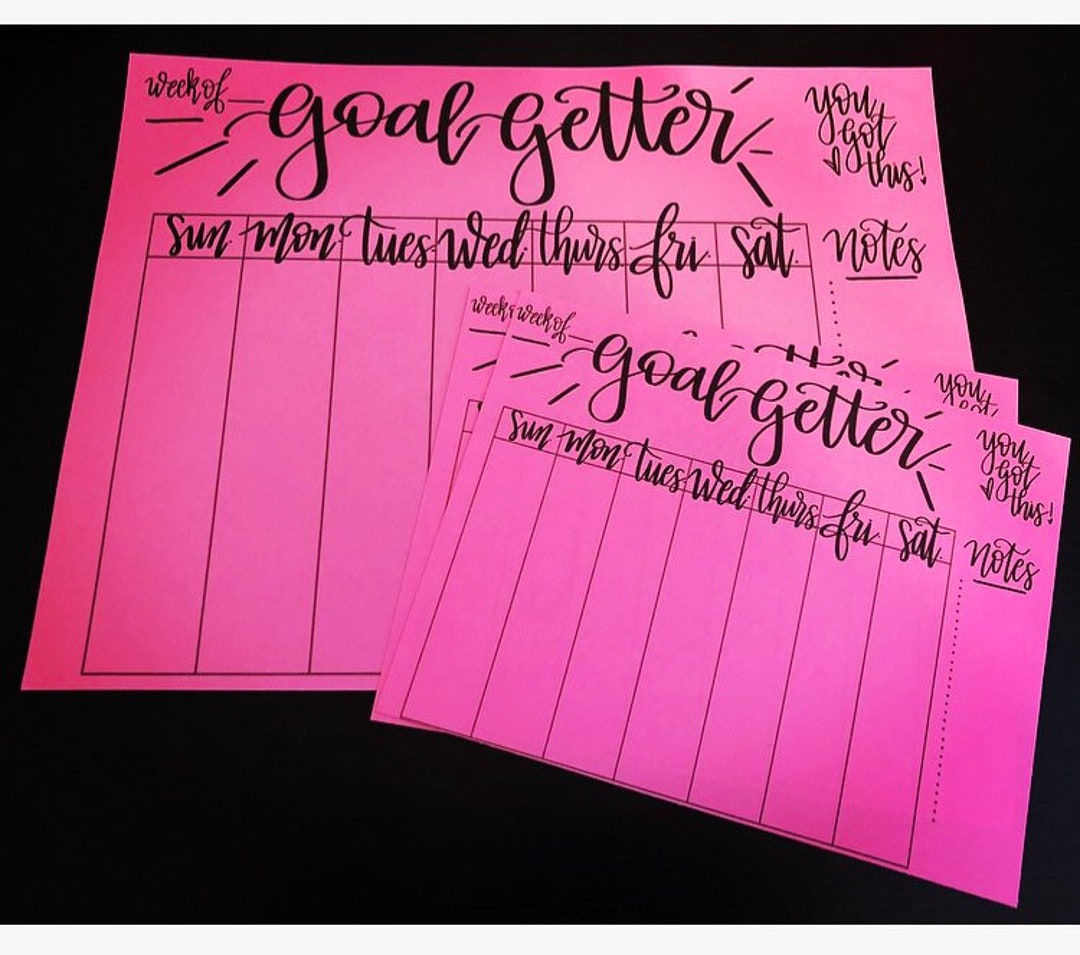 week of
goal getter
you
got
this!
sun. mon. tues. wed. thurs. fri. sat.
notes
week
week of
goal getter
you
got
you
got
this!
sun. mon. tues. wed. thurs. fri. sat.
notes